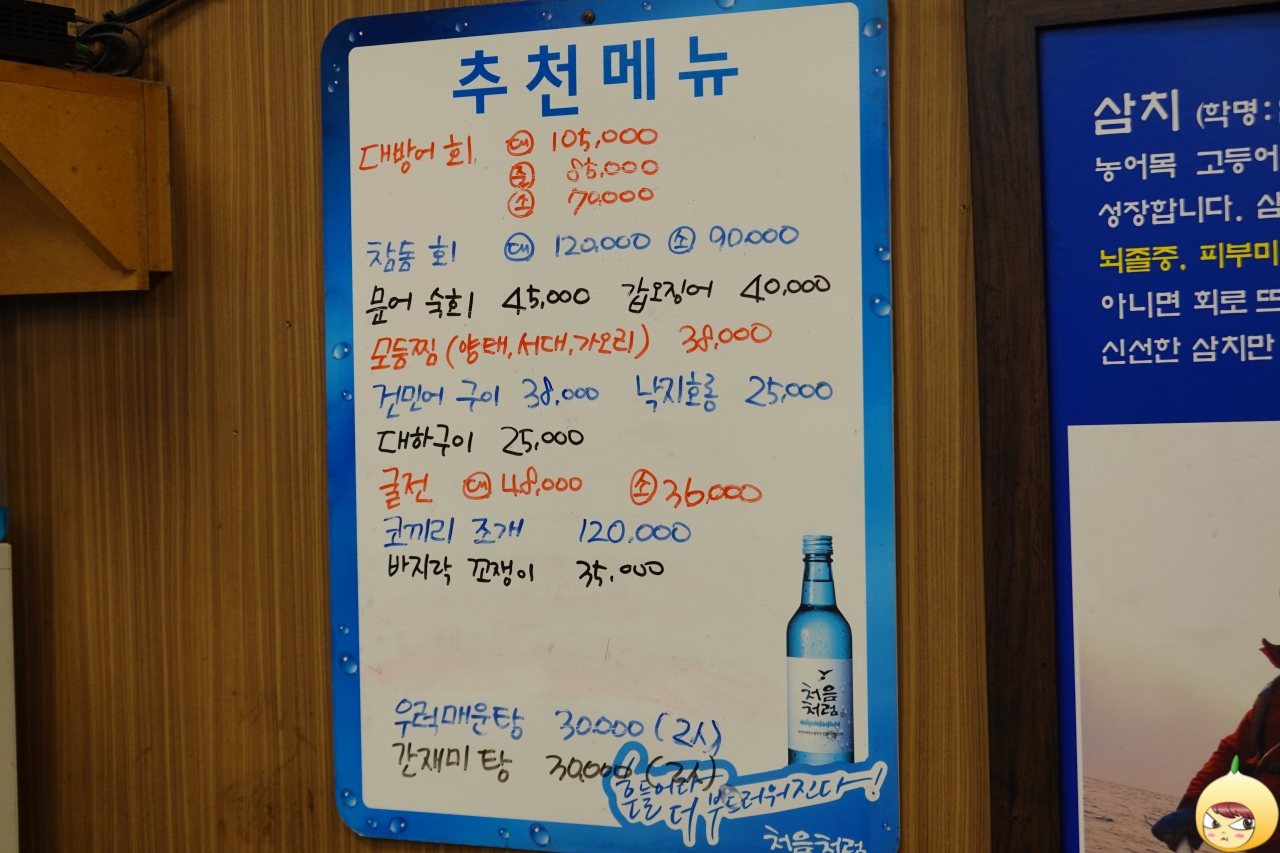 추천메뉴
대방어 회 대 105,000
중 85,000
소 70,000
참돔 회 대 120,000 소 90,000
문어 숙회 45,000 갑오징어 40,000
모듬찜 (양태, 서대, 가오리) 38,000
건민어 구이 38,000 낙지호롱 25,000
대하구이 25,000
굴전 대 48,000 소 36,000
코끼리 조개 120,000
바지락 꼬쟁이 35,000
우럭매운탕 30,000 (2人)
간재미 탕 30,000 (2人)
처음
처럼
흔들어라
더 부드러워진다~!
처음처럼
삼치 (학명:
농어목 고등어
성장합니다. 삼
뇌졸중, 피부미
아니면 회로 뜨
신선한 삼치만